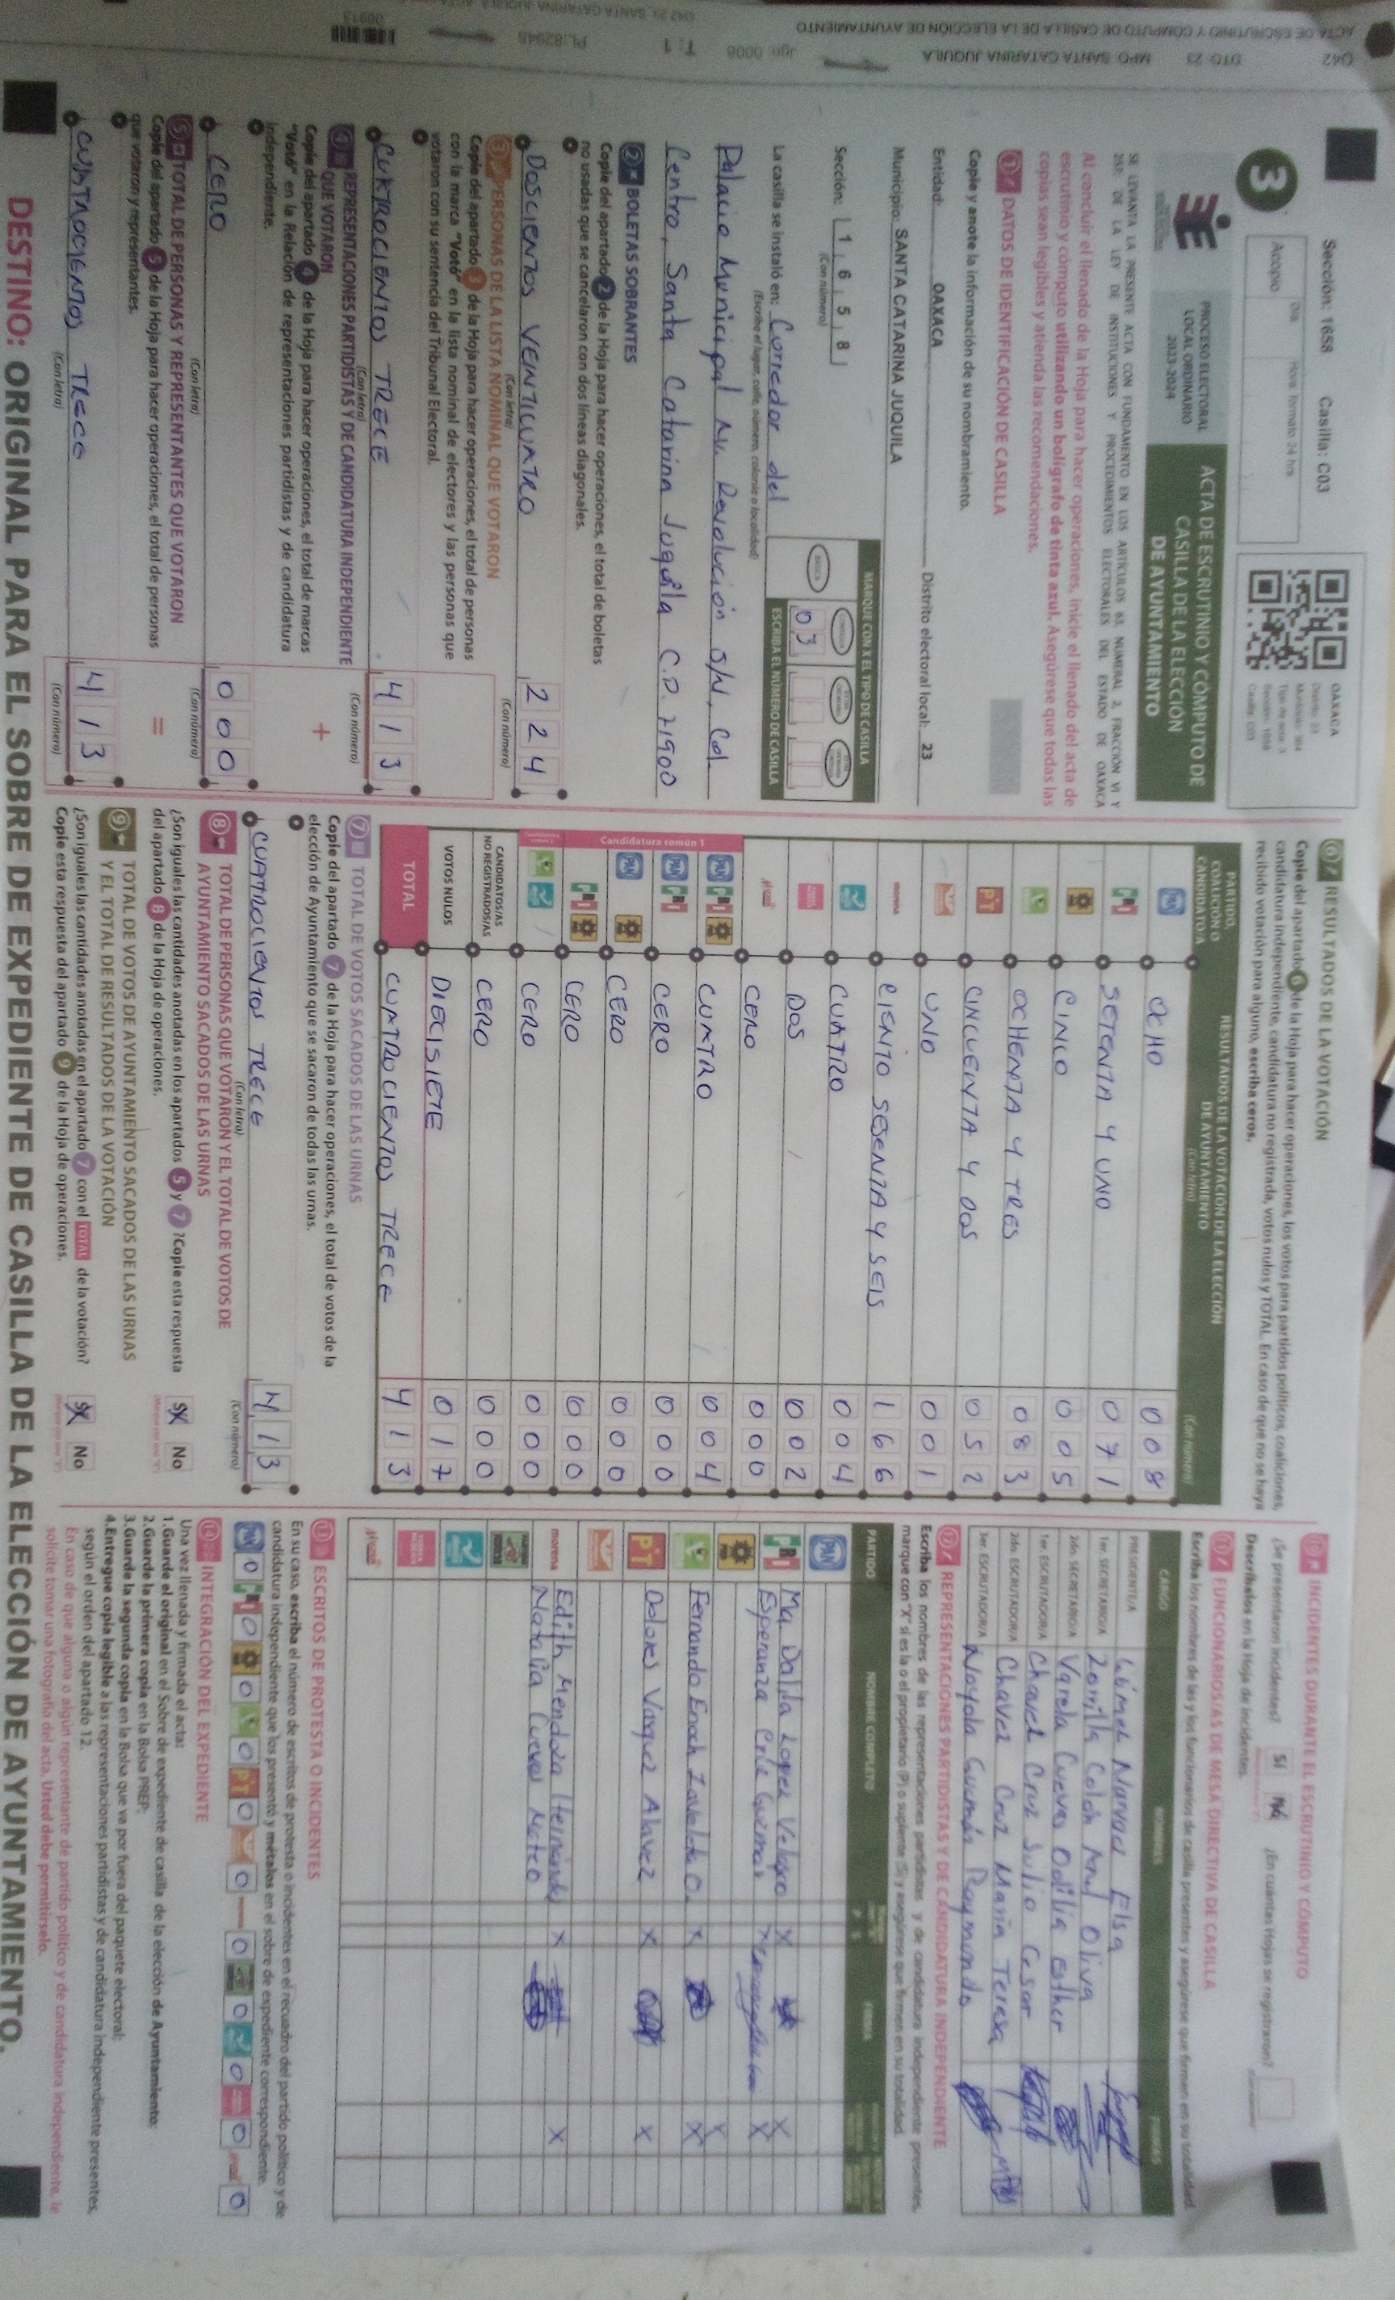 Sección: 1658 Casilla: C03
3
Acopio
Día Hora: formato 24 hrs
OAXACA
PROCESO ELECTORAL
LOCAL ORDINARIO
2023-2024
ACTA DE ESCRUTINIO Y CÓMPUTO DE
CASILLA DE LA ELECCIÓN
DE AYUNTAMIENTO
SE LEVANTA LA PRESENTE ACTA CON FUNDAMENTO EN LOS ARTÍCULOS 63, NUMERAL 2, FRACCIÓN VI Y
DE LA LEY DE INSTITUCIONES Y PROCEDIMIENTOS ELECTORALES DEL ESTADO DE OAXACA
Al concluir el llenado de la Hoja para hacer operaciones, inicie el llenado del acta de
escrutinio y cómputo utilizando un bolígrafo de tinta azul. Asegúrese que todas las
copias sean legibles y atienda las recomendaciones.
1 DATOS DE IDENTIFICACIÓN DE CASILLA
Copie y anote la información de su nombramiento.
Entidad: OAXACA Distrito electoral local: 23
Municipio: SANTA CATARINA JUQUILA
Sección: 1 6 5 8
(Con número)
MARQUE CON X EL TIPO DE CASILLA
03
ESCRIBA EL NÚMERO DE CASILLA
La casilla se instaló en: Corredor del
(Escriba el lugar, calle, número, colonia o localidad)
Palacio Municipal Av. Revolución S/N, Col.
Centro, Santa Catarina Juquila C.P. 71900
2 BOLETAS SOBRANTES
Copie del apartado 2 de la Hoja para hacer operaciones, el total de boletas
no usadas que se cancelaron con dos líneas diagonales.
DOSCIENTOS VEINTICUATRO 2 2 4
(Con letra) (Con número)
3 PERSONAS DE LA LISTA NOMINAL QUE VOTARON
Copie del apartado 3 de la Hoja para hacer operaciones, el total de personas
con la marca "Votó" en la lista nominal de electores y las personas que
votaron con su sentencia del Tribunal Electoral.
CUATROCIENTOS TRECE 4 1 3
(Con letra) (Con número)
4 REPRESENTACIONES PARTIDISTAS Y DE CANDIDATURA INDEPENDIENTE
QUE VOTARON
+
Copie del apartado 4 de la Hoja para hacer operaciones, el total de marcas
"Votó" en la Relación de representaciones partidistas y de candidatura
independiente.
CERO 0 0 0
(Con letra) (Con número)
5 TOTAL DE PERSONAS Y REPRESENTANTES QUE VOTARON
=
Copie del apartado 5 de la Hoja para hacer operaciones, el total de personas
que votaron y representantes.
CUATROCIENTOS TRECE 4 1 3
(Con letra) (Con número)
6 RESULTADOS DE LA VOTACIÓN
Copie del apartado 6 de la Hoja para hacer operaciones, los votos para partidos políticos, coaliciones,
candidatura independiente, candidatura no registrada, votos nulos y TOTAL. En caso de que no se haya
recibido votación para alguno, escriba ceros.
PARTIDO,
COALICIÓN O
CANDIDATO/A
RESULTADOS DE LA VOTACIÓN DE LA ELECCIÓN
DE AYUNTAMIENTO
(Con letra) (Con número)
PAN OCHO 0 0 8
PRI SETENTA Y UNO 0 7 1
CINCO 0 0 5
OCHENTA Y TRES 0 8 3
PT CINCUENTA Y DOS 0 5 2
UNO 0 0 1
morena CIENTO SESENTA Y SEIS 1 6 6
CUATRO 0 0 4
DOS 0 0 2
CERO 0 0 0
Candidatura común 1
PAN PRI CUATRO 0 0 4
PAN PRI CERO 0 0 0
PAN CERO 0 0 0
PRI CERO 0 0 0
CERO 0 0 0
CANDIDATOS/AS
NO REGISTRADOS/AS CERO 0 0 0
VOTOS NULOS DIECISIETE 0 1 7
TOTAL CUATROCIENTOS TRECE 4 1 3
7 TOTAL DE VOTOS SACADOS DE LAS URNAS
Copie del apartado 7 de la Hoja para hacer operaciones, el total de votos de la
elección de Ayuntamiento que se sacaron de todas las urnas.
CUATROCIENTOS TRECE 4 1 3
(Con letra) (Con número)
8 TOTAL DE PERSONAS QUE VOTARON Y EL TOTAL DE VOTOS DE
AYUNTAMIENTO SACADOS DE LAS URNAS
¿Son iguales las cantidades anotadas en los apartados 5 y 7 ?Copie esta respuesta
del apartado 8 de la Hoja de operaciones.
SÍ No
9 TOTAL DE VOTOS DE AYUNTAMIENTO SACADOS DE LAS URNAS
Y EL TOTAL DE RESULTADOS DE LA VOTACIÓN
¿Son iguales las cantidades anotadas en el apartado 7 con el TOTAL de la votación?
Copie esta respuesta del apartado 9 de la Hoja de operaciones.
SÍ No
10 INCIDENTES DURANTE EL ESCRUTINIO Y CÓMPUTO
¿Se presentaron incidentes? Sí No ¿En cuántas Hojas se registraron?
Descríbalos en la Hoja de incidentes.
11 FUNCIONARIOS/AS DE MESA DIRECTIVA DE CASILLA
Escriba los nombres de las y los funcionarios de casilla presentes y asegúrese que firmen en su totalidad.
CARGO NOMBRES FIRMAS
PRESIDENTE/A Gómez Narvaez Elsa
1er. SECRETARIO/A Zorrilla Colón Oliva
2do. SECRETARIO/A Varela Cuevas Odilia Esther
1er. ESCRUTADOR/A Chavez Cruz Julio Cesar
2do. ESCRUTADOR/A Chavez Cruz Maria Teresa
3er. ESCRUTADOR/A Noyola Guzmán Raymundo
12 REPRESENTACIONES PARTIDISTAS Y DE CANDIDATURA INDEPENDIENTE
Escriba los nombres de las representaciones partidistas y de candidatura independiente presentes,
marque con "X" si es la o el propietario (P) o suplente (S) y asegúrese que firmen en su totalidad.
PARTIDO NOMBRE COMPLETO FIRMA
PAN
PRI Ma Dalila Lopez Velasco X X
Esperanza Cruz Guzman X X
Fernando Enoch Zavaleta C. X X
PT Dolores Vasquez Alavez X X
morena Edith Mendoza Hernández X X
Natalia Cuevas Mateo
13 ESCRITOS DE PROTESTA O INCIDENTES
En su caso, escriba el número de escritos de protesta o incidentes en el recuadro del partido político y de
candidatura independiente que los presentó y métalos en el sobre de expediente correspondiente.
PAN 0 PRI 0 0 0 PT 0 0 0 0 0 0 0
14 INTEGRACIÓN DEL EXPEDIENTE
Una vez llenada y firmada el acta:
1.Guarde el original en el Sobre de expediente de casilla de la elección de Ayuntamiento;
2.Guarde la primera copia en la Bolsa PREP;
3.Guarde la segunda copia en la Bolsa que va por fuera del paquete electoral;
4.Entregue copia legible a las representaciones partidistas y de candidatura independiente presentes,
según el orden del apartado 12.
En caso de que alguna o algún representante de partido político y de candidatura independiente, le
solicite tomar una fotografía del acta, Usted debe permitírselo.
DESTINO: ORIGINAL PARA EL SOBRE DE EXPEDIENTE DE CASILLA DE LA ELECCIÓN DE AYUNTAMIENTO.
ACTA DE ESCRUTINIO Y CÓMPUTO DE CASILLA DE LA ELECCIÓN DE AYUNTAMIENTO
042 DTO: 23 MPO: SANTA CATARINA JUQUILA